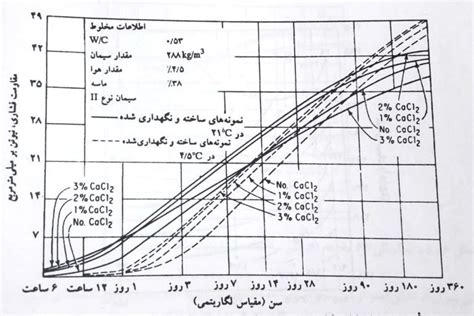 مقاومت فشاری، نیوتن بر میلی‌مترمربع
۴۹
۴۲
۳۵
۲۸
۲۱
۱۴
۷
اطلاعات مخلوط
W/C ۰/۵۳
مقدار سیمان ۲۸۸ kg/m3
مقدار هوا ۴/۵٪
ماسه ۳۸٪
سیمان نوع II
نمونه‌های ساخته و نگهداری شده
در ۲۱°C
نمونه‌های ساخته و نگهداری‌شده
در ۴/۵°C
2% CaCl2
1% CaCl2
No. CaCl2
3% CaCl2
3% CaCl2
2% CaCl2
1% CaCl2
No. CaCl2
No. CaCl2
1% CaCl2
2% CaCl2
3% CaCl2
۶ ساعت
۱۲ ساعت
۱ روز
۳ روز
۷ روز
۱۴ روز
۲۸ روز
۹۰ روز
۱۸۰ روز
۳۶۰ روز
سن (مقیاس لگاریتمی)